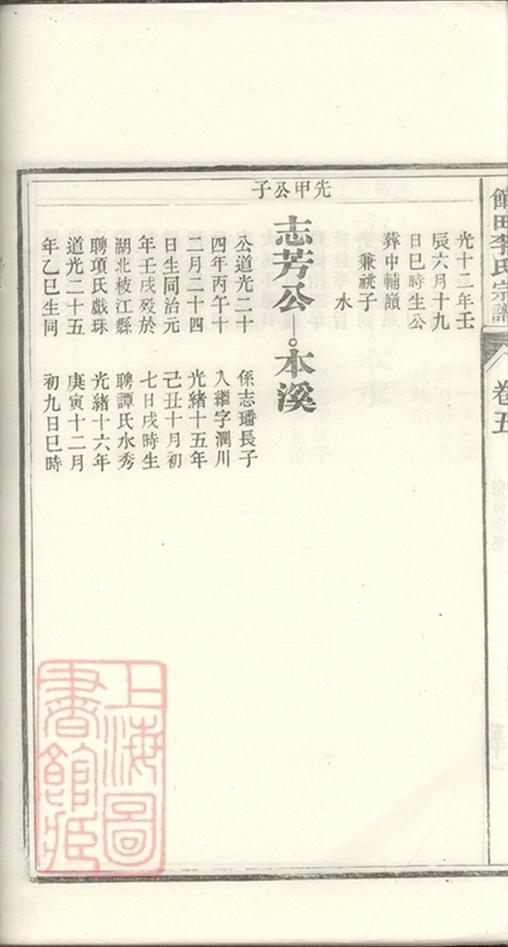 館田李氏宗譜
卷五
先甲公子
光十二年壬
辰六月十九
日巳時生公
葬中輔嶺
兼祧子
水
志芳公 本溪
公道光二十
四年丙午十
二月二十四
日生同治元
年壬戌歿於
湖北枝江縣
聘項氏戲珠
道光二十五
年乙巳生同
係志璠長子
入繼字潤川
光緒十五年
己丑十月初
七日戌時生
聘譚氏水秀
光緒十六年
庚寅十二月
初九日巳時
上海圖書館藏